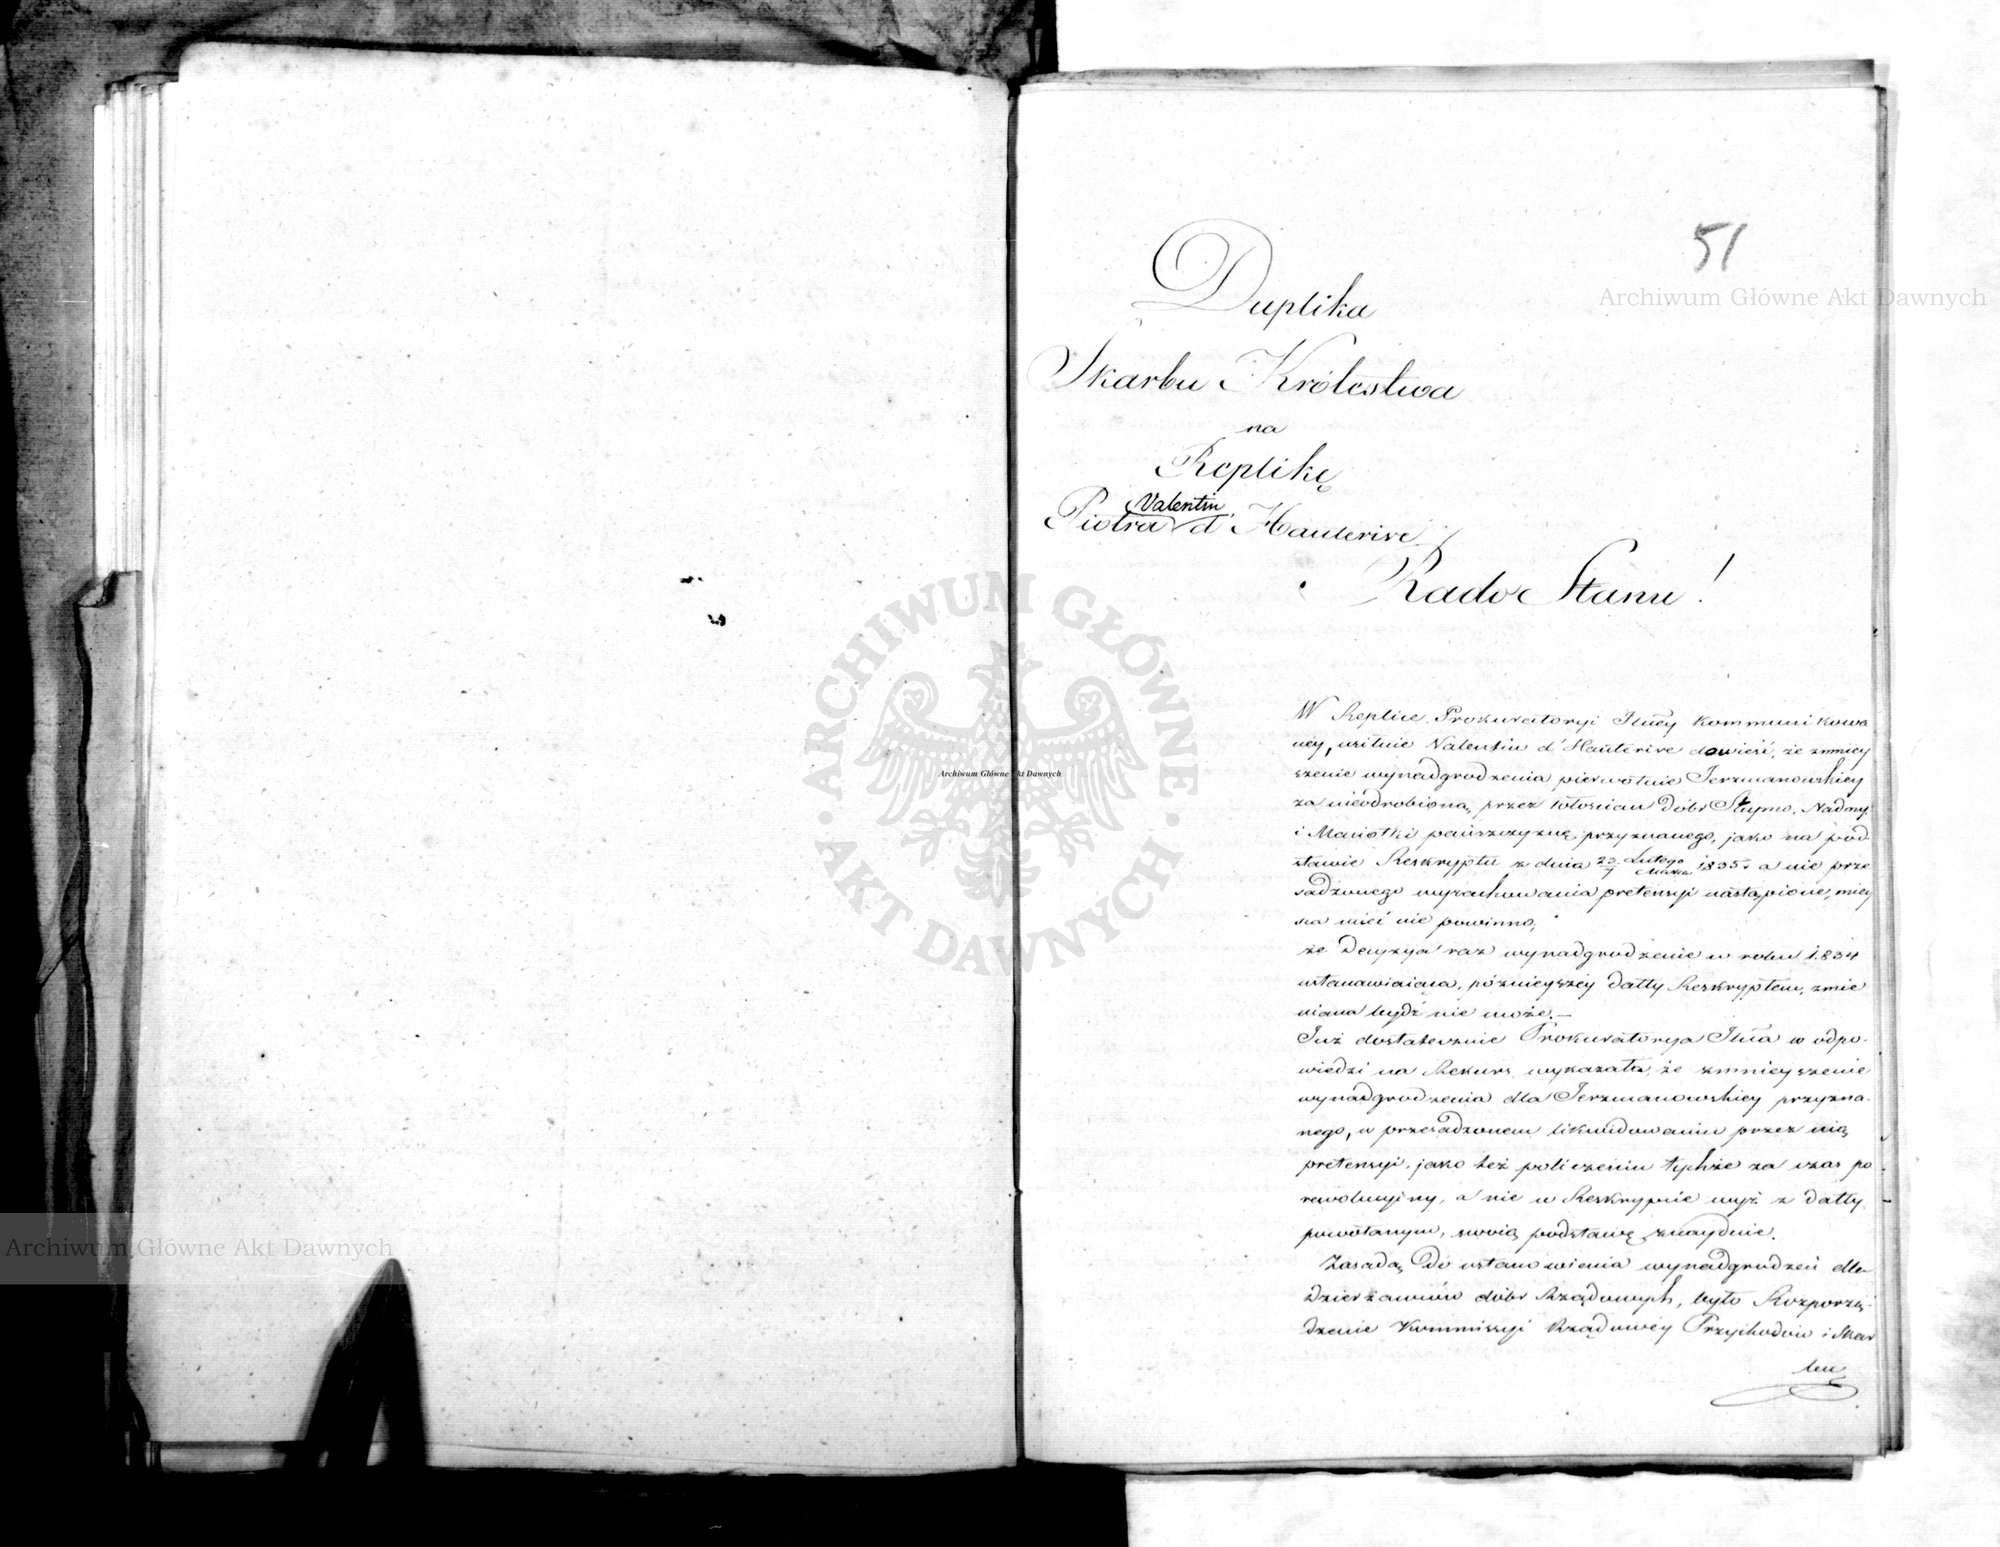 51
Duplika
Skarbu Królestwa
na
Replikę
Valentin
Piotra d'Hauterive
Rado Stanu!
W Replice Prokuratoryi Jlney kommunikowa
ney, usiłuie Valentin d'Hauterive dowieść, że zmniey
szenie wynadgrodzenia pierwotnie Jerzmanowskiey
za nieodrobioną przez włościan dóbr Słupno, Nadmy
i Maciołki pańszczyznę przyznanego, jako na pod
stawie Reskryptu z dnia 23 Lutego / 7 Marca 1835 r. a nie prze
sadzonego wyrachowania pretensyi nastąpione, miey
sca mieć nie powinno,
że Decyzya raz wynadgrodzenie w roku 1834
ustanawiaiąca, późnieyszey datty Reskryptem, zmie
niana bydź nie może.—
Już dostatecznie Prokuratorya Jlna w odpo-
wiedzi na Rekurs wykazała, że zmnieyszenie
wynadgrodzenia dla Jerzmanowskiey przyzna-
nego, w przesadzonem likwidowaniu przez nią
pretensyi, jako też policzeniu tychże za czas po
rewolucyiny, a nie w Reskrypcie wyż z datty
powołanym, swoią podstawę znayduie.
Zasadą do ustanowienia wynadgrodzeń dla
Dzierżawców dóbr Rządowych, było Rozporzą-
dzenie Kommissyi Rządowey Przychodów i Skar
bu
Archiwum Główne Akt Dawnych
Archiwum Główne Akt Dawnych
Archiwum Główne Akt Dawnych
ARCHIWUM GŁÓWNE
AKT DAWNYCH